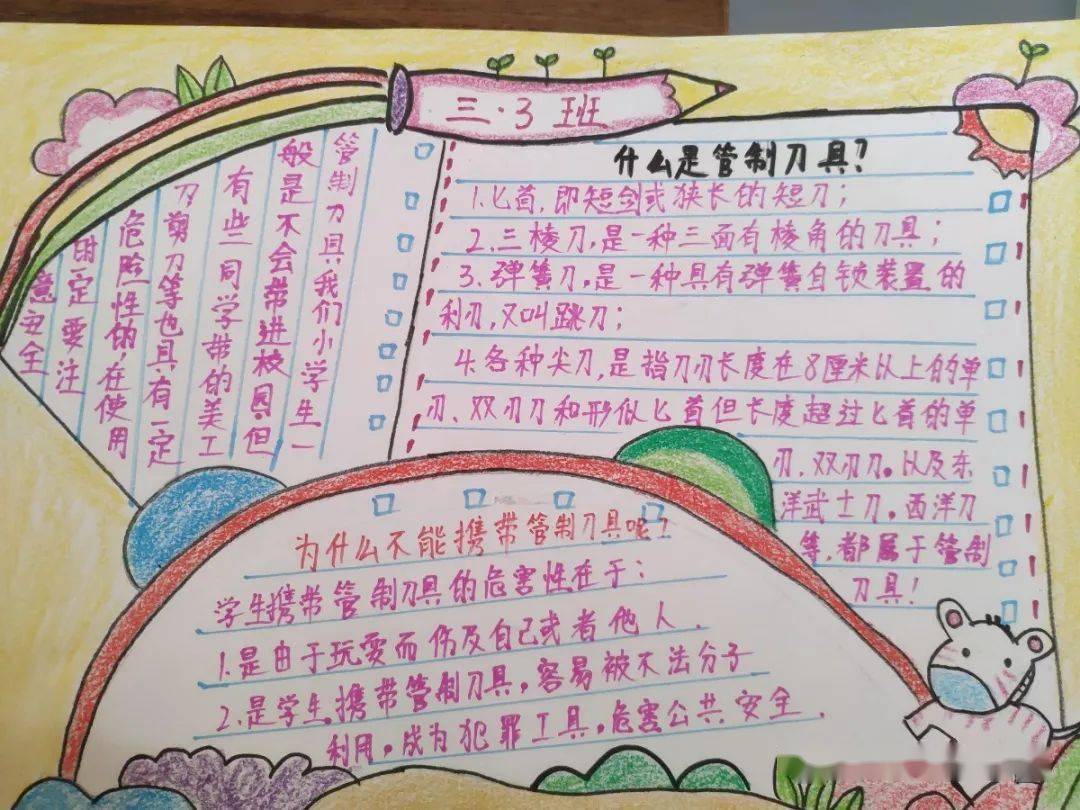 三·3班
管制刀具我们小学生一
般是不会带进校园但
有些同学带的美工
刀剪刀等也具有一定
危险性的,在使用
时一定要注
意安全
什么是管制刀具?
1.匕首,即短剑或狭长的短刀;
2.三棱刀,是一种三面有棱角的刀具;
3.弹簧刀,是一种具有弹簧自锁装置的
利刃,又叫跳刀;
4.各种尖刀,是指刀刃长度在8厘米以上的单
刃、双刃刀和形似匕首但长度超过匕首的单
刃、双刃刀。以及东
洋武士刀。西洋刀
等,都属于管制
刀具!
为什么不能携带管制刀具呢?
学生携带管制刀具的危害性在于:
1.是由于玩耍而伤及自己或者他人.
2.是学生携带管制刀具,容易被不法分子
利用,成为犯罪工具,危害公共安全.